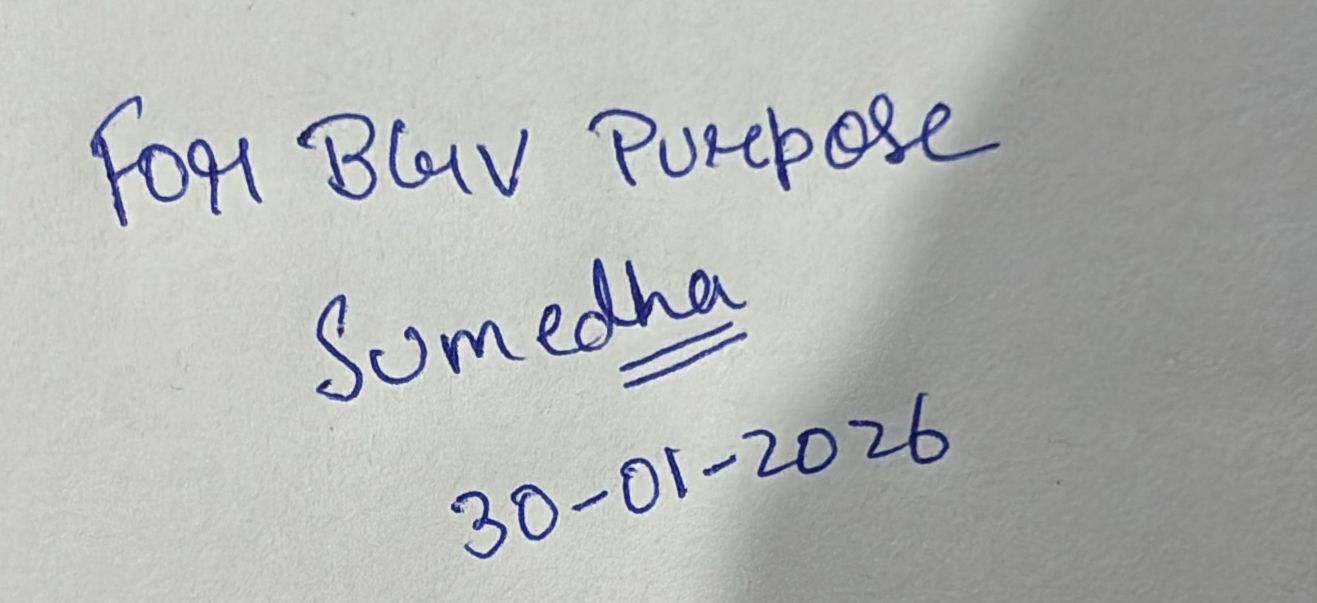 For BGV Purpose
Sumedha
30-01-2026